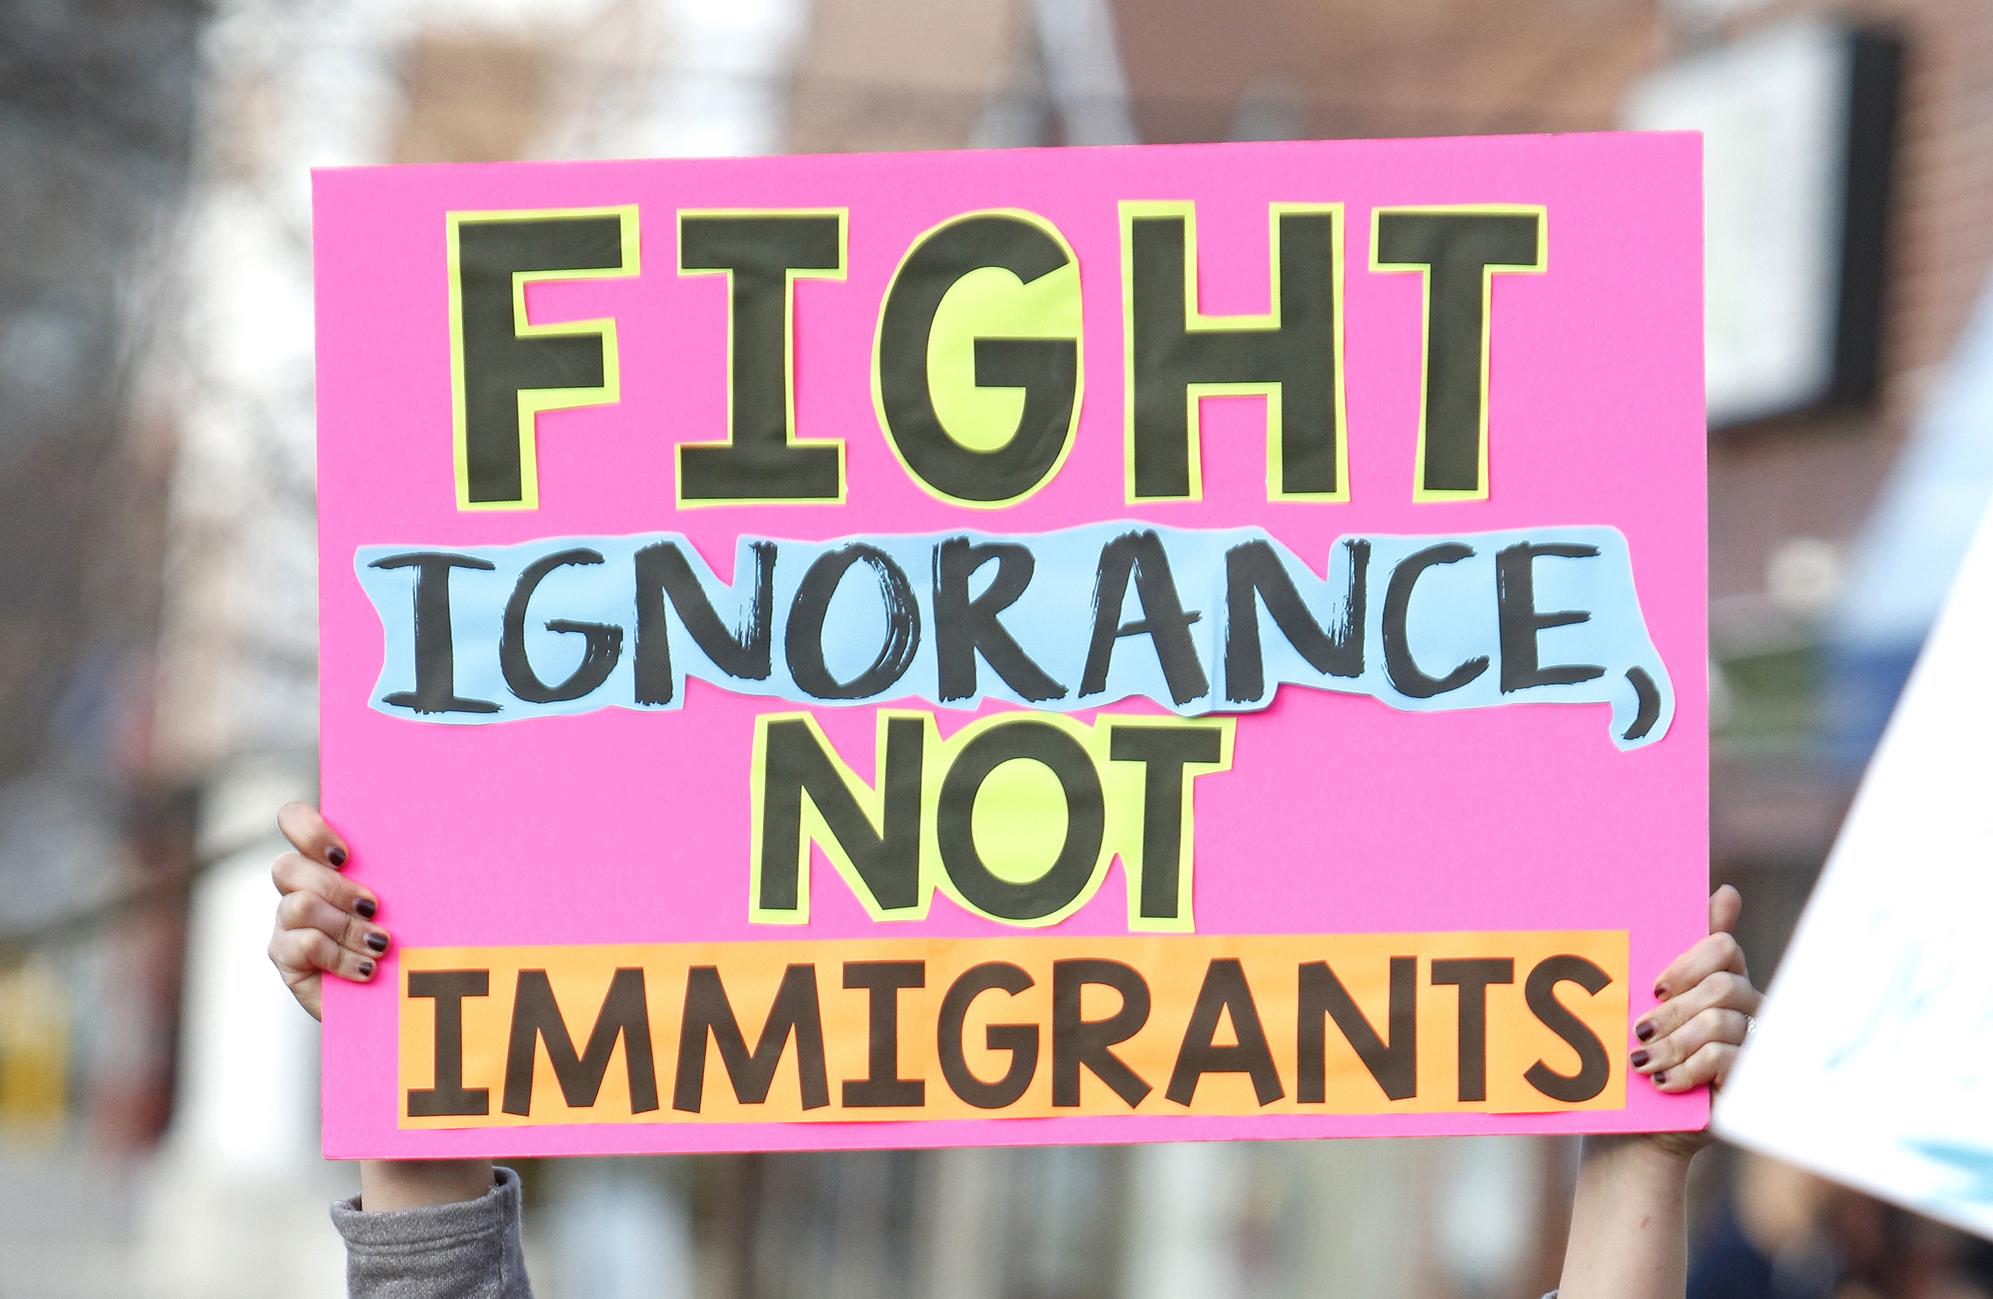 FIGHT
IGNORANCE,
NOT
IMMIGRANTS